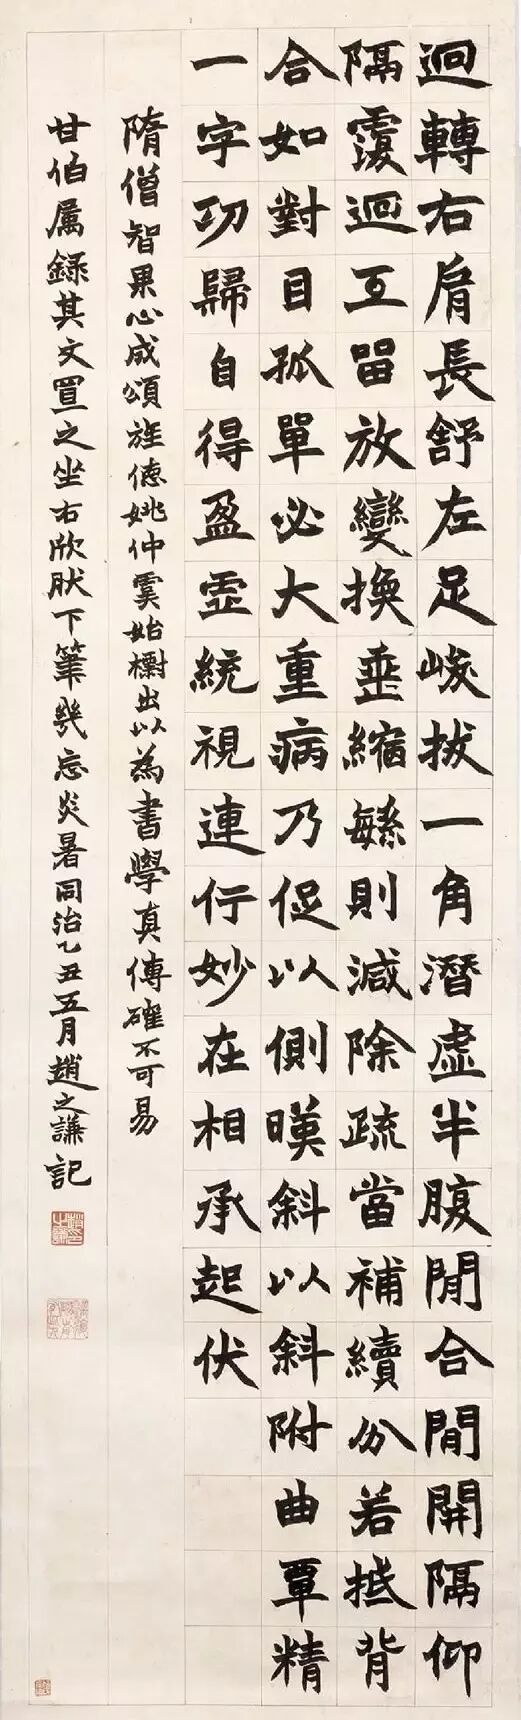 迴轉右肩長舒左足峻拔一角潛虛半腹閒合閒開隔仰
隔覆迴互留放變換垂縮緐則減除疏當補續分若抵背
合如對目孤單必大重病乃促以側暎斜以斜附曲覃精
一字功歸自得盈虛統視連行妙在相承起伏
隋僧智果心成頌旌德姚仲虞始檃出以為書學真傳確不可易
甘伯屬錄其文置之坐右欣肰下筆幾忘炎暑同治乙丑五月趙之謙記